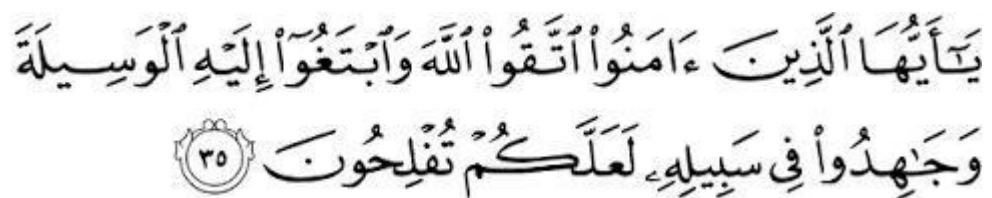 يَـٰٓأَيُّهَا ٱلَّذِينَ ءَامَنُوا۟ ٱتَّقُوا۟ ٱللَّهَ وَٱبْتَغُوٓا۟ إِلَيْهِ ٱلْوَسِيلَةَ
وَجَـٰهِدُوا۟ فِى سَبِيلِهِۦ لَعَلَّكُمْ تُفْلِحُونَ ٣٥